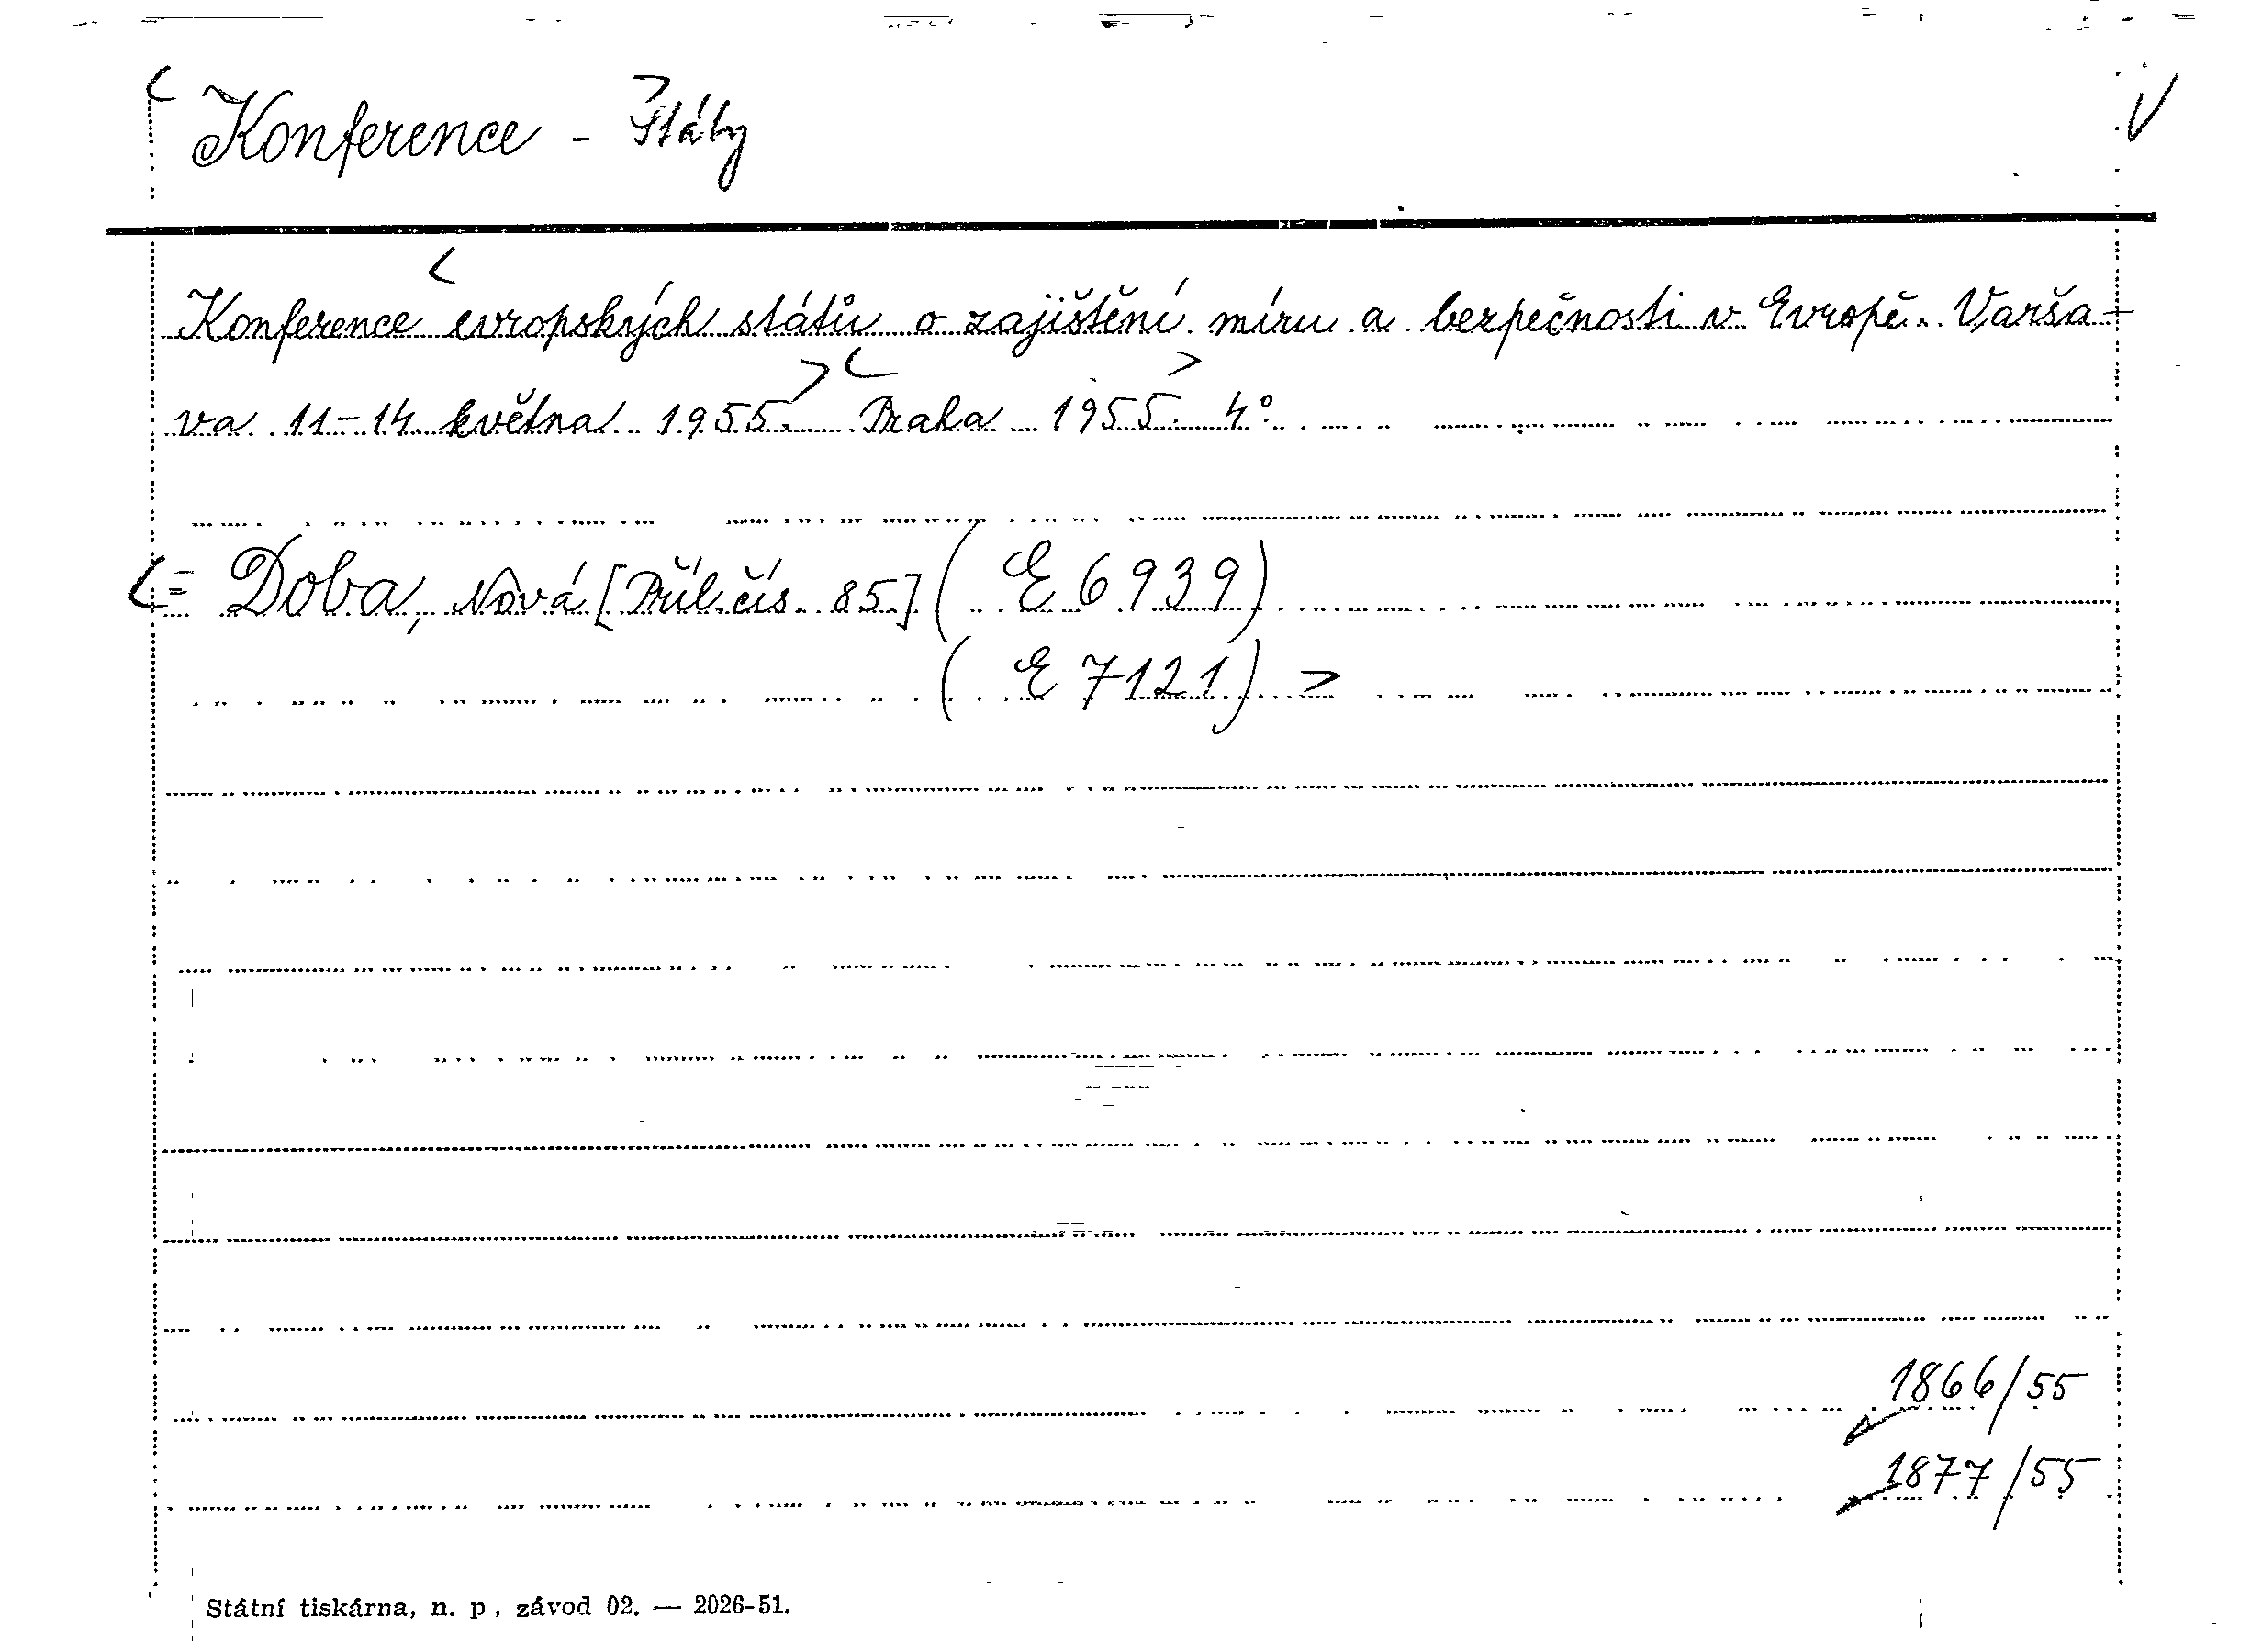 Konference - Státy
Konference evropských států o zajištění míru a bezpečnosti v Evropě. Varša-
va 11-14 května 1955. Praha 1955. 4°
= Doba, Nová [Příl. čís. 85] (E 6939)
(E 7121)
1866/55
1877/55
Státní tiskárna, n. p., závod 02. — 2026-51.